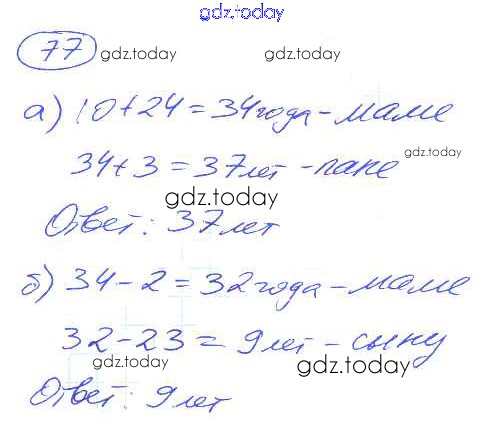 gdz.today
77 gdz.today gdz.today
а) 10+24=34года-маме
gdz.today
34+3=37лет-папе
gdz.today
Ответ: 37лет
б) 34-2=32года-маме
32-23=9лет-сыну
gdz.today gdz.today
Ответ: 9лет